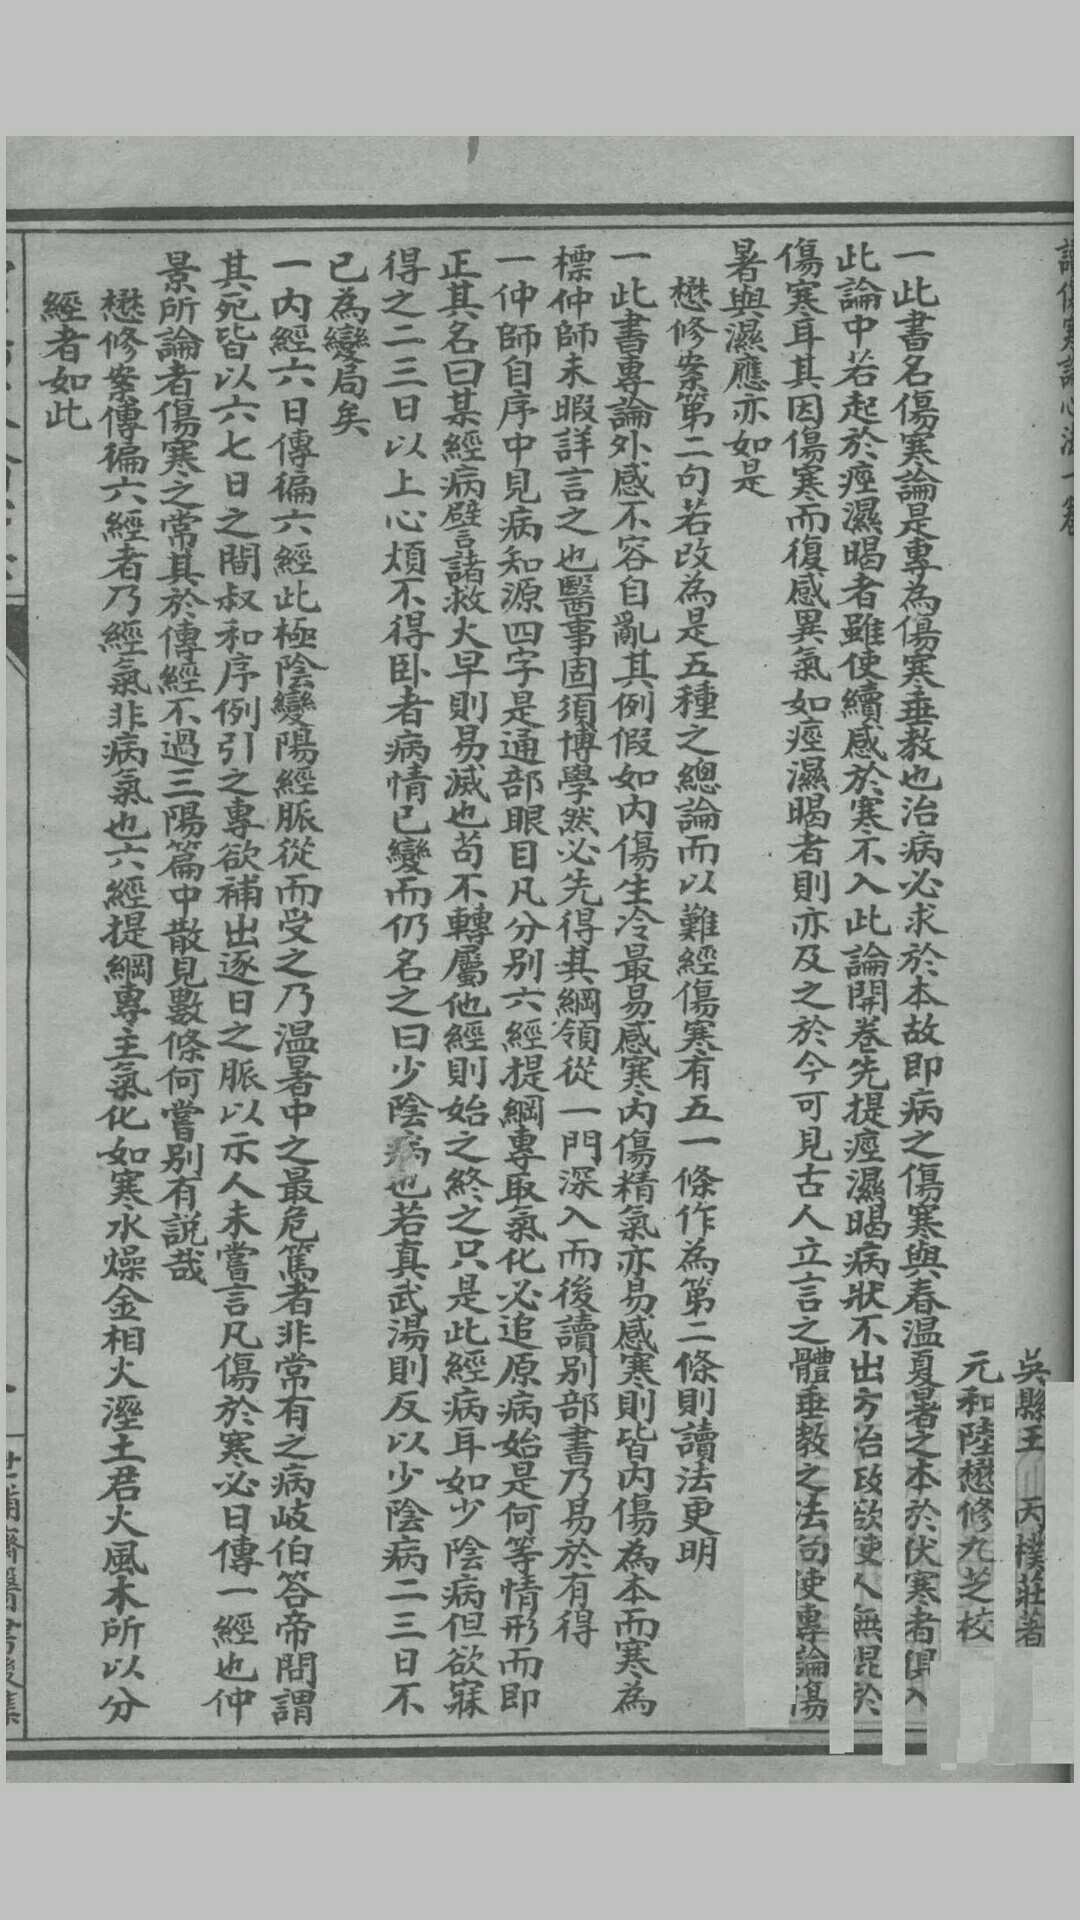 吳縣王 丙樸莊著
元和陸懋修九芝校
一此書名傷寒論是專為傷寒垂教也治病必求於本故即病之傷寒與春温夏暑之本於伏寒者俱入
此論中若起於痙濕暍者雖使續感於寒不入此論開卷先提痙濕暍病狀不出方治政欲使人無混於
傷寒耳其因傷寒而復感異氣如痙濕暍者則亦及之於今可見古人立言之體垂教之法苟使專論傷
暑與濕應亦如是
懋修案第二句若改為是五種之總論而以難經傷寒有五一條作為第二條則讀法更明
一此書專論外感不容自亂其例假如內傷生冷最易感寒內傷精氣亦易感寒則皆內傷為本而寒為
標仲師未暇詳言之也醫事固須博學然必先得其綱領從一門深入而後讀别部書乃易於有得
一仲師自序中見病知源四字是通部眼目凡分别六經提綱專取氣化必追原病始是何等情形而即
正其名曰某經病譬諸救火早則易滅也苟不轉屬他經則始之終之只是此經病耳如少陰病但欲寐
得之二三日以上心煩不得卧者病情已變而仍名之曰少陰病也若真武湯則反以少陰病二三日不
已為變局矣
一內經六日傳徧六經此極陰變陽經脈從而受之乃温暑中之最危篤者非常有之病岐伯答帝問謂
其死皆以六七日之間叔和序例引之專欲補出逐日之脈以示人未嘗言凡傷於寒必日傳一經也仲
景所論者傷寒之常其於傳經不過三陽篇中散見數條何嘗别有説哉
懋修案傳徧六經者乃經氣非病氣也六經提綱專主氣化如寒水燥金相火溼土君火風木所以分
經者如此
世補齋醫書後集